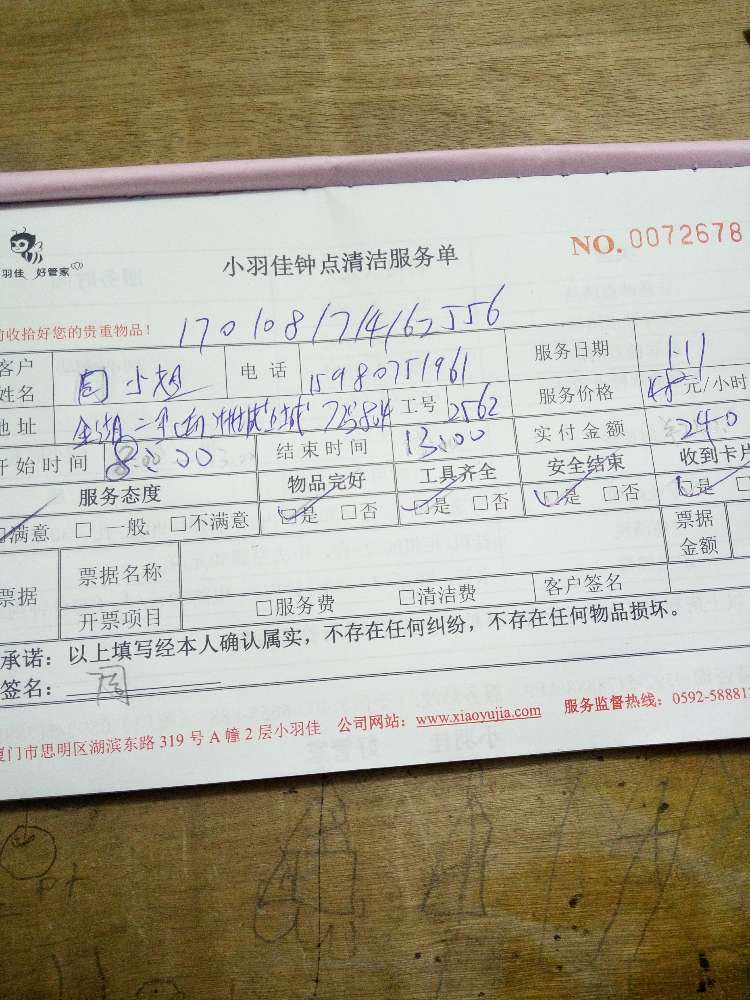 羽佳 好管家
小羽佳钟点清洁服务单
NO. 0072678
前收拾好您的贵重物品！ 170108171416255​6
客户姓名 周小姐 电话 15980751961 服务日期 1.11
地址 工号 2562 服务价格 元/小时
开始时间 8:00 结束时间 13:00 实付金额 240
服务态度 物品完好 工具齐全 安全结束 收到卡片
满意 □ 一般 □不满意 □是 □否 □是 □否 □是 □否 □是
票据 票据名称 票据金额
开票项目 □服务费 □清洁费 客户签名
承诺：以上填写经本人确认属实，不存在任何纠纷，不存在任何物品损坏。
签名： 周
厦门市思明区湖滨东路 319 号 A 幢 2 层小羽佳 公司网站：www.xiaoyujia.com 服务监督热线：0592-588812